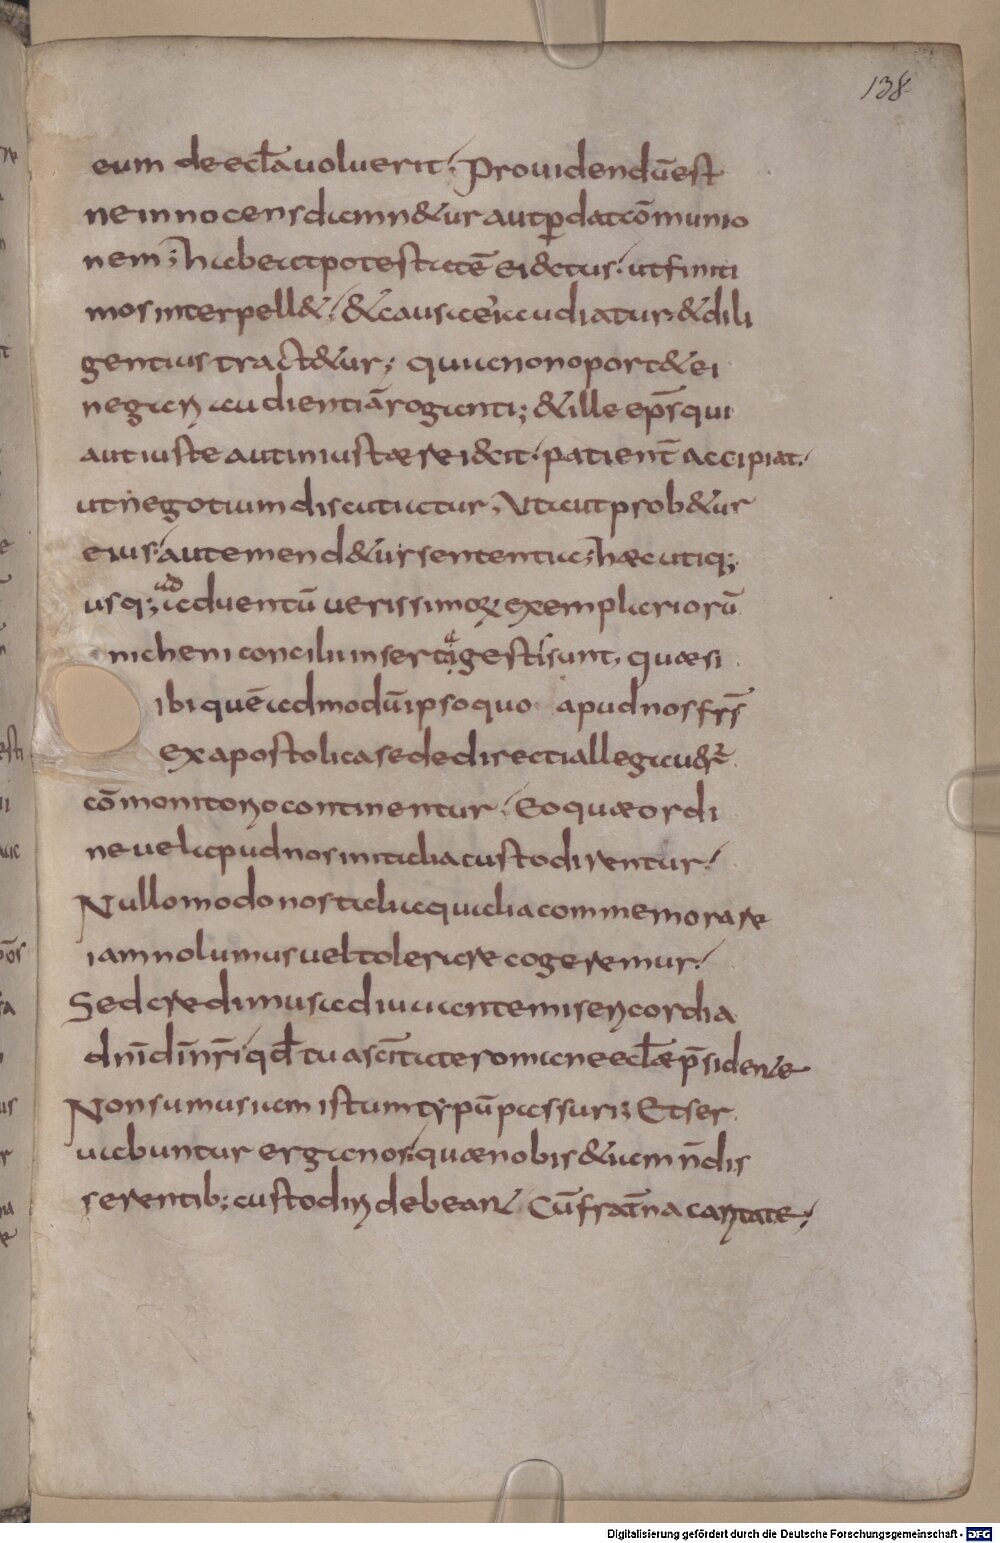 138
eum de eccl̄a uoluerit. Prouidendū est
ne innocens damn&ur aut ꝑdat cōmunio
nem; habeat potestatē eiectus. ut finiti
mos interpell&. & causa ei(us) audiatur. & dili
gentius tract&ur; quia non oport& ei
negari audientiā roganti; & ille ep̄s qui
aut iuste aut iniustæ reiecit. patient̄ accipiat.
ut negotium discutiatur, Ut aut prob&ur
eius. aut emend&ur sententia; hæc utiq;
usq; ad aduentū uerissimoꝝ exemplariorū
nicheni concilii inserta gestis sunt, quæ si
ibi quē admodū ipso quo apud nos frs̄
ex apostolica sede directi allegauer̄
cōmonitorio continentur. Eo quæ ordi
ne uel apud nos in italia custodirentur.
Nullo modo nos talia qualia commemorare
iam nolumus uel tolerare cogeremur.
Sed credimus adiuuante misericordia
dn̄i dī nr̄i qd̄ tua sc̄itate romane eccl̄æ p̄sidente
Non sumus iam istum typū passuri; Et ser
uabuntur erga nos. quæ nobis &iam n̄ dis
serentib; custodiri debeant Cū frat̄na caritate.
Digitalisierung gefördert durch die Deutsche Forschungsgemeinschaft - DFG